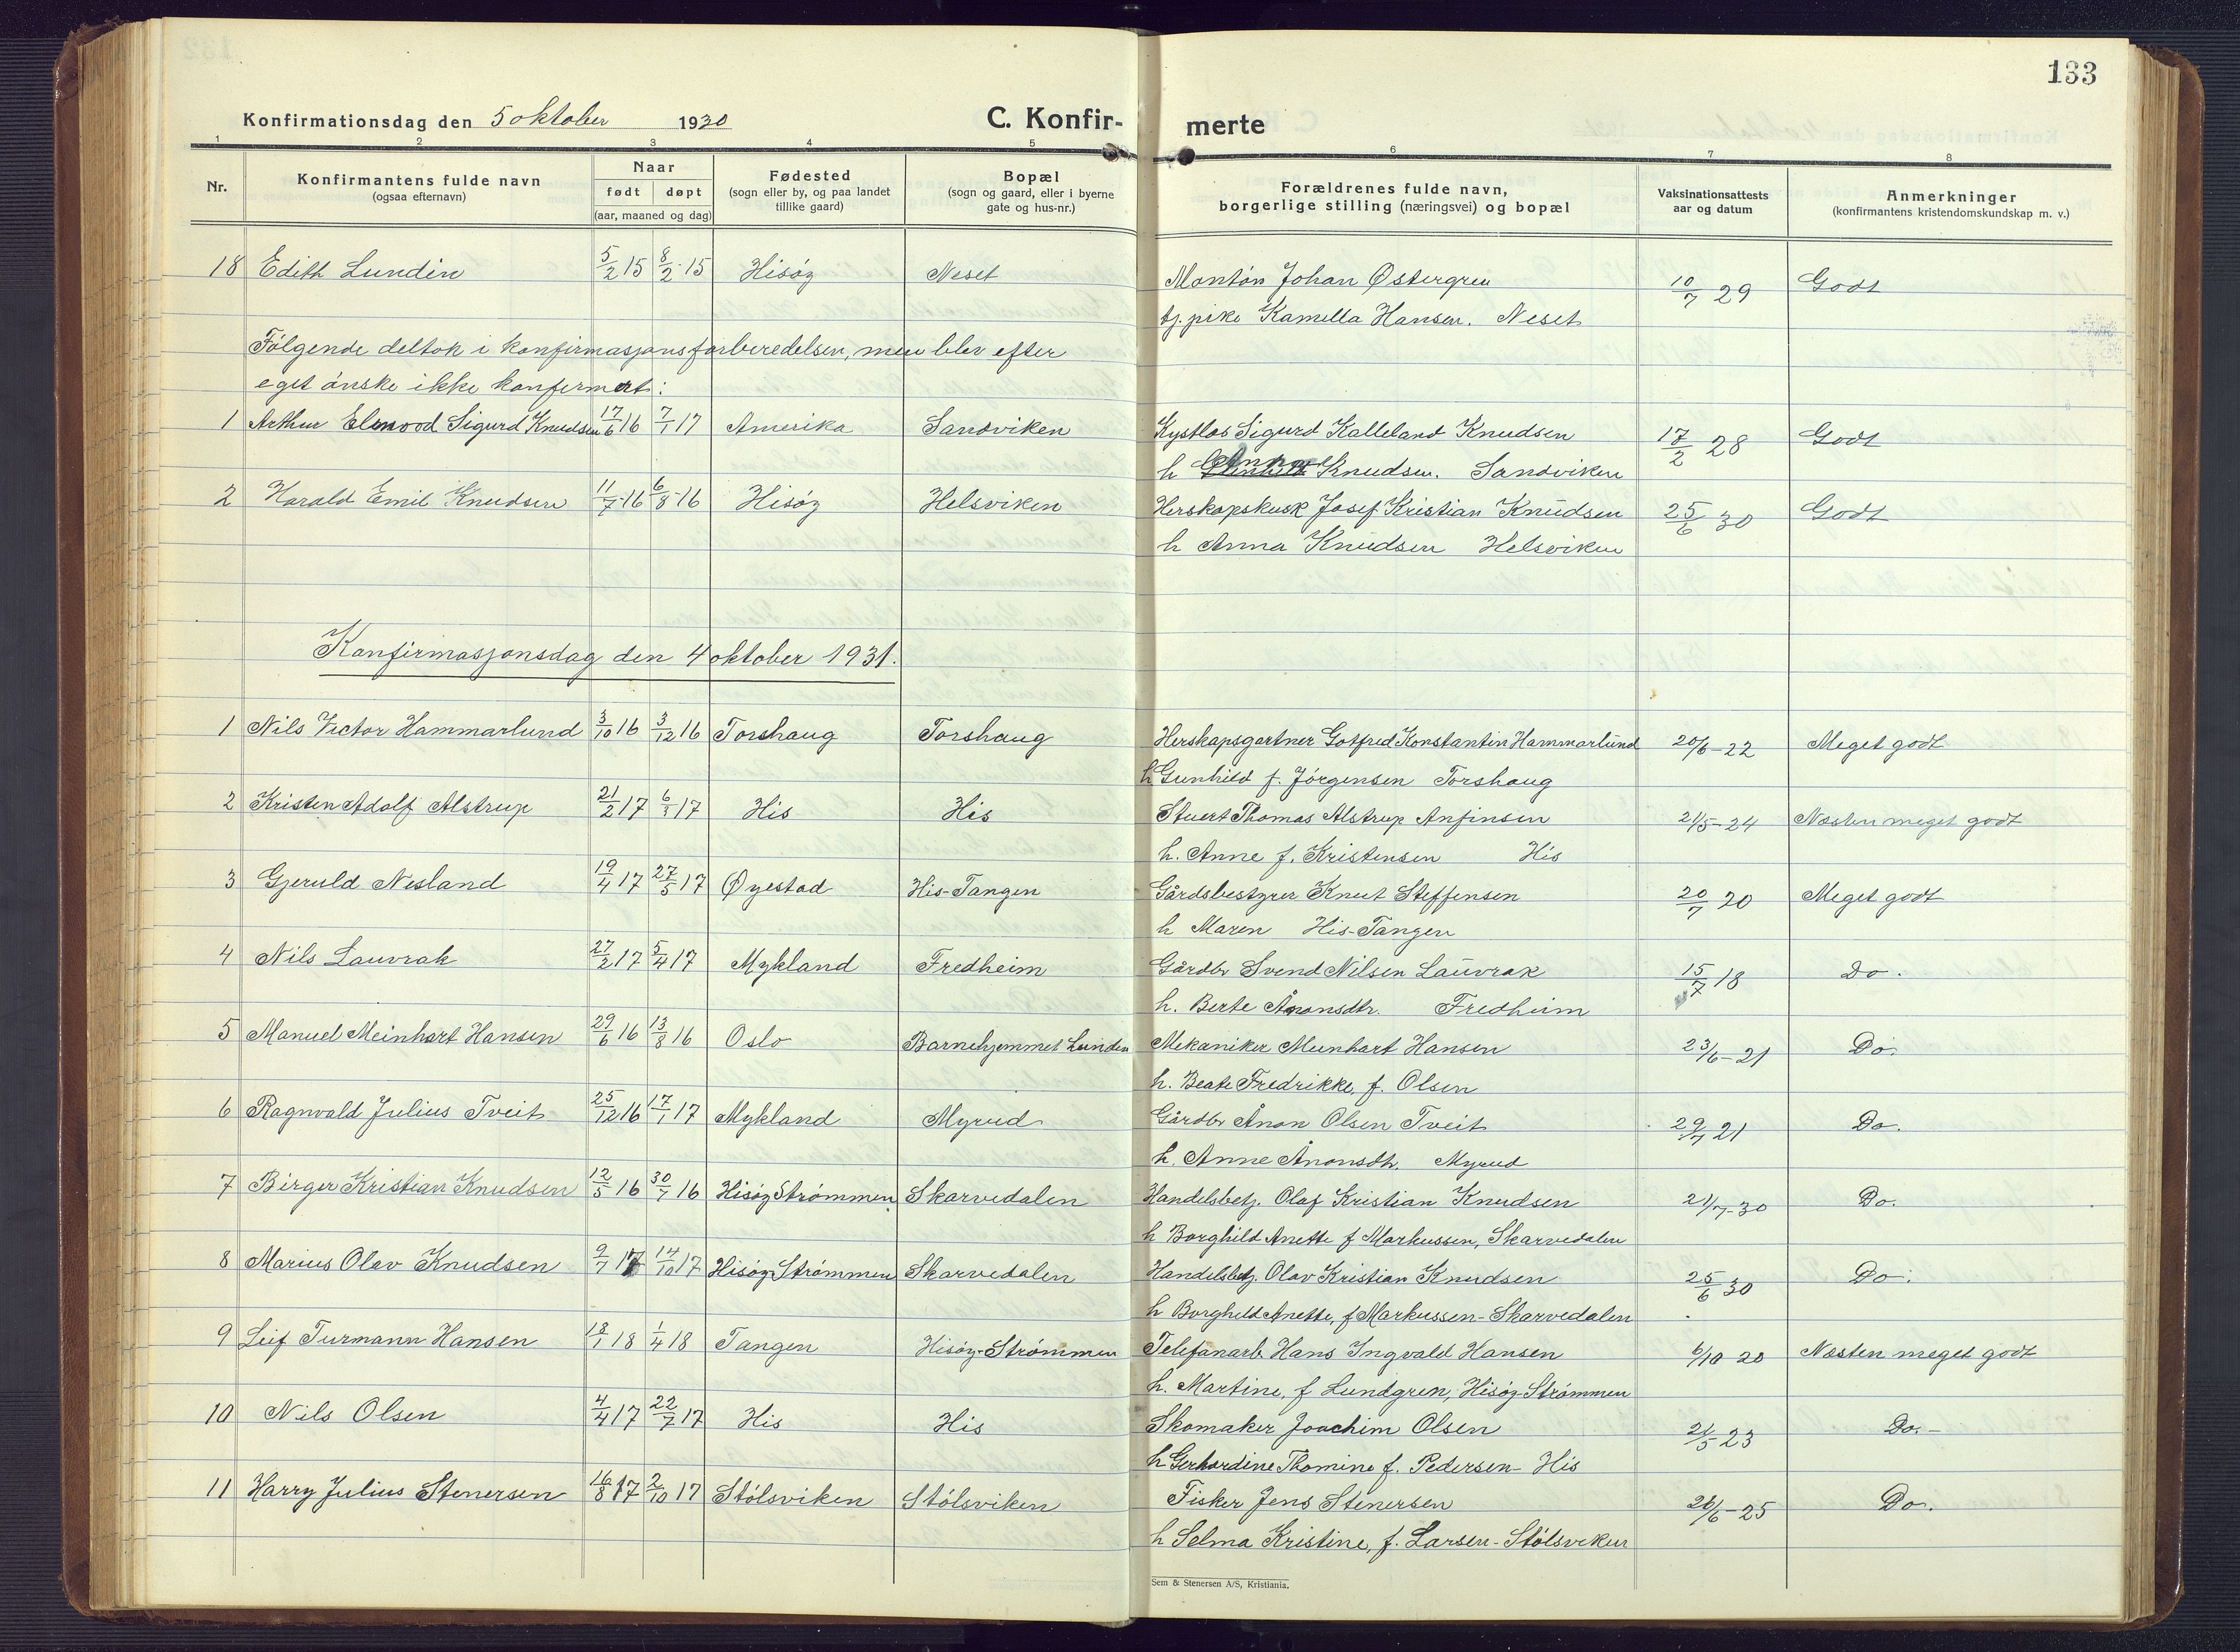 133
Konfirmationsdag den 5 oktober 1930
C. Konfir-merte
1 2 3 4 5 6 7 8
Nr. Konfirmantens fulde navn (ogsaa efternavn) Naar født døpt (aar, maaned og dag) Fødested (sogn eller by, og paa landet tillike gaard) Bopæl (sogn og gaard, eller i byerne gate og hus-nr.) Forældrenes fulde navn, borgerlige stilling (næringsvei) og bopæl Vaksinationsattests aar og datum Anmerkninger (konfirmantens kristendomskundskap m. v.)
18 Edith Lundin 5/2 15 8/2 15 Hisøy Neset Montør Johan Østergren 10/7 29 Godt
tj. pike Kamella Hansen. Neset
Følgende deltok i konfirmasjonsforberedelsen, men blev efter
eget ønske ikke konfermert:
1 Arthur Elmood Sigurd Knudsen 17/6 16 7/1 17 Amerika Sandviken Kystlos Sigurd Kalleland Knudsen 17/2 28 Godt
h Anna Knudsen. Sandviken
2 Harald Emil Knudsen 11/7 16 6/8 16 Hisøy Helsviken Herskapskusk Josef Kristian Knudsen 25/6 30 Godt
h Anna Knudsen Helsviken
Konfirmasjonsdag den 4 oktober 1931.
1 Nils Victor Hammarlund 3/10 16 3/12 16 Torshaug Torshaug Herskapsgartner Gotfred Konstantin Hammarlund 20/6-22 Meget godt
h Gunhild f. Jørgensen Torshaug
2 Kristen Adolf Alstrup 21/2 17 6/3 17 His His Stuert Thomas Alstrup Anfinsen 21/5-24 Næsten meget godt
h. Anne f. Kristensen His
3 Gjeruld Nesland 19/4 17 27/5 17 Øyestad His-Tangen Gårdsbestyrer Knut Steffensen 20/7 20 Meget godt
h Maren His-Tangen
4 Nils Lauvrak 27/2 17 5/4 17 Mykland Fredheim Gårdbr Svend Nilsen Lauvrak 15/7 18 Do.
h. Berte Ånonsdtr. Fredheim
5 Manuel Meinhart Hansen 29/6 16 13/8 16 Oslo Barnehjemmet Lunden Mekaniker Meinhart Hansen 23/6-21 Do.
h. Beate Fredrikke, f. Olsen
6 Ragnvald Julius Tveit 25/12 16 17/1 17 Mykland Myrud Gårdbr Ånon Olsen Tveit 29/7 21 Do.
h. Anne Ånonsdtr. Myrud
7 Birger Kristian Knudsen 12/5 16 30/7 16 Hisøy Strømmen Skarvedalen Handelsbetj. Olaf Kristian Knudsen 21/7-30 Do.
h Borghild Anette f Markussen, Skarvedalen
8 Marius Olav Knudsen 9/7 17 14/10 17 Hisøy Strømmen Skarvedalen Handelsbetj. Olav Kristian Knudsen 25/6 30 Do.
h Borghild Anette, f Markussen-Skarvedalen
9 Leif Turmann Hansen 18/1 18 1/4 18 Tangen Hisøy-Strømmen Telefonarb. Hans Ingvald Hansen 6/10 20 Næsten meget godt
h. Martine, f Lundgren, Hisøy-Strømmen
10 Nils Olsen 4/4 17 22/7 17 His His Skomaker Joachim Olsen 21/5 23 Do.-
h Gerhardine Thomine f. Pedersen- His
11 Harry Julius Stenersen 16/8 17 2/10 17 Stølsviken Stølsviken Fisker Jens Stenersen 26/6-25 Do.
h Selma Kristine, f. Larsen-Stølsviken
Sem & Stenersen A/S, Kristiania.